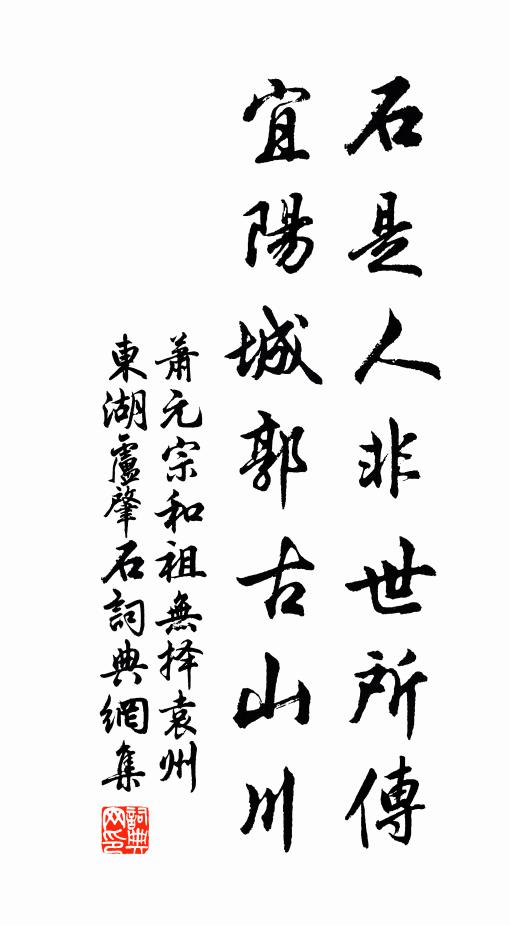 石是人非世所傳
宜陽城郭古山川
蕭元宗和祖無择袁州
東湖盧肇石詞典網集
詞典
网印